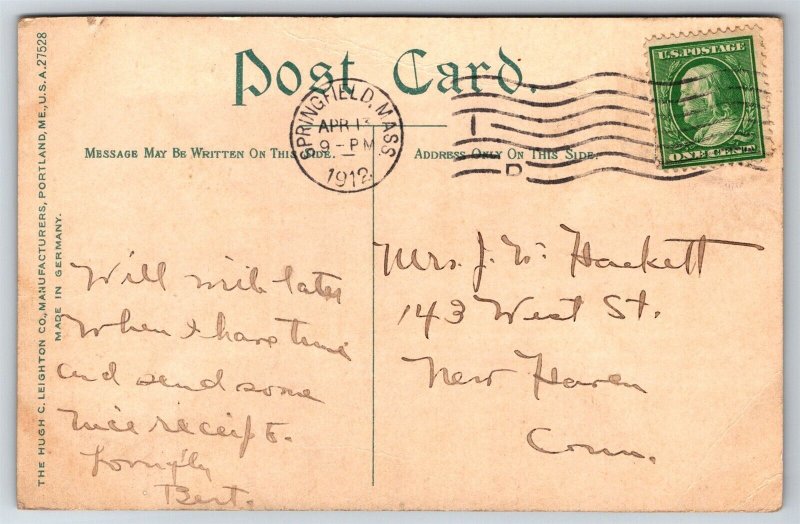 Post Card.
U.S. POSTAGE
ONE CENT
SPRINGFIELD, MASS.
APR 13
9-PM
1912
MESSAGE MAY BE WRITTEN ON THIS SIDE.
ADDRESS ONLY ON THIS SIDE.
THE HUGH C. LEIGHTON CO., MANUFACTURERS, PORTLAND, ME., U.S.A. 27528
MADE IN GERMANY.
Will write later
When I have time
and send some
nice receipt.
Bert.
Mrs. J. W. Hackett
143 West St.
New Haven
Conn.